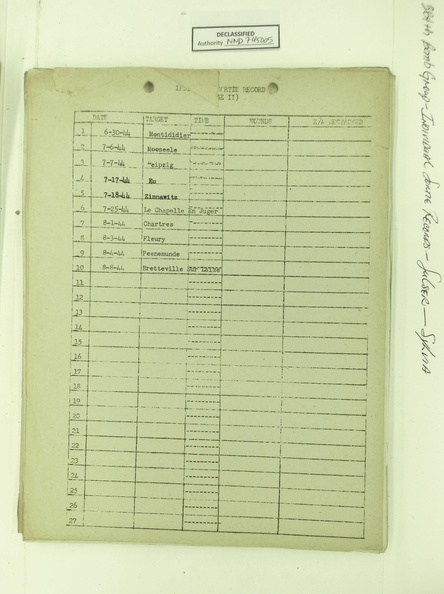 DECLASSIFIED
Authority NND 745005
384th Bomb Group - Individual Sortie Records -
RTIE RECORD
DATE TARGET TIME
1 6-30-44 Montididier
2 7-6-44 Mooseele
3 7-7-44 eipzig
4 7-17-44 Eu
5 7-18-44 Zinnawits
6 7-25-44 Le Chapelle En Juger
7 8-1-44 Chartres
8 8-3-44 Fleury
9 8-4-44 Peenemunde
10 8-8-44 Bretteville
11
12
13
14
15
16
17
18
19
20
21
22
23
24
25
26
27